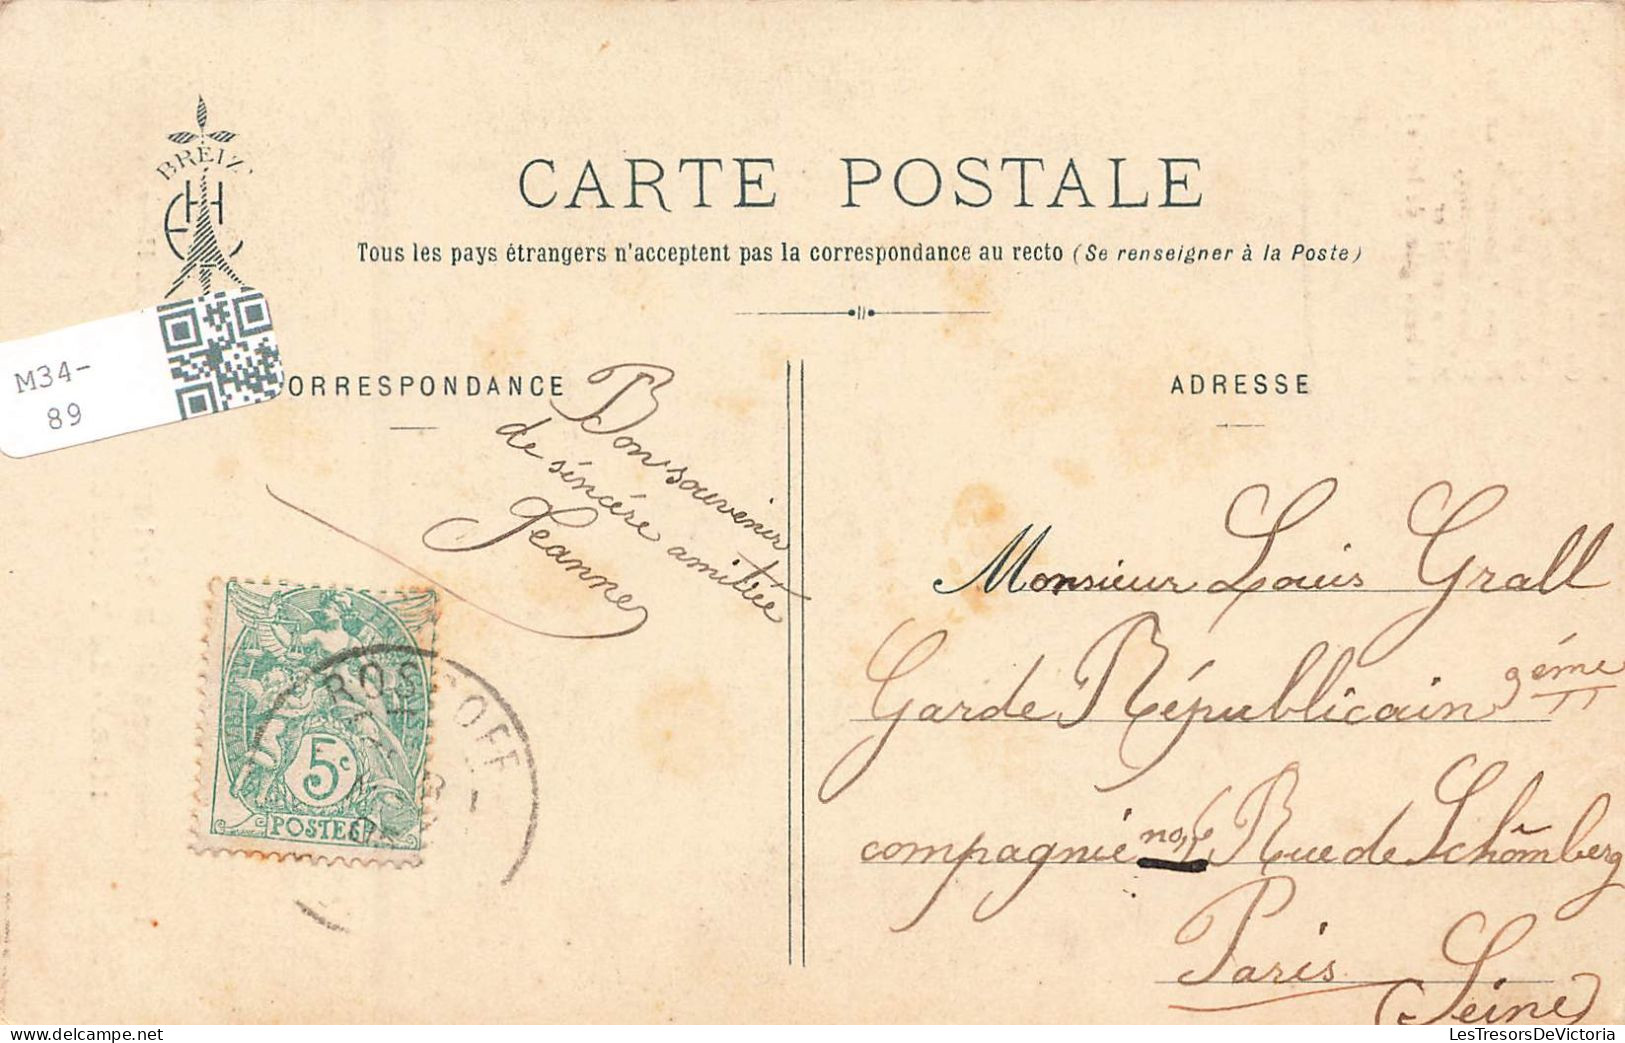 BREIZ
CARTE POSTALE
Tous les pays étrangers n'acceptent pas la correspondance au recto (Se renseigner à la Poste)
M34-
89
ORRESPONDANCE
Bon souvenir
de sincére amitiée
Jeanne
ROSCOFF
5c
POSTES
ADRESSE
Monsieur Louis Grall
Garde Républicain 9éme
compagnie no, 6 Rue de Schômberg
Paris
(Seine)
LesTresorsDeVictoria